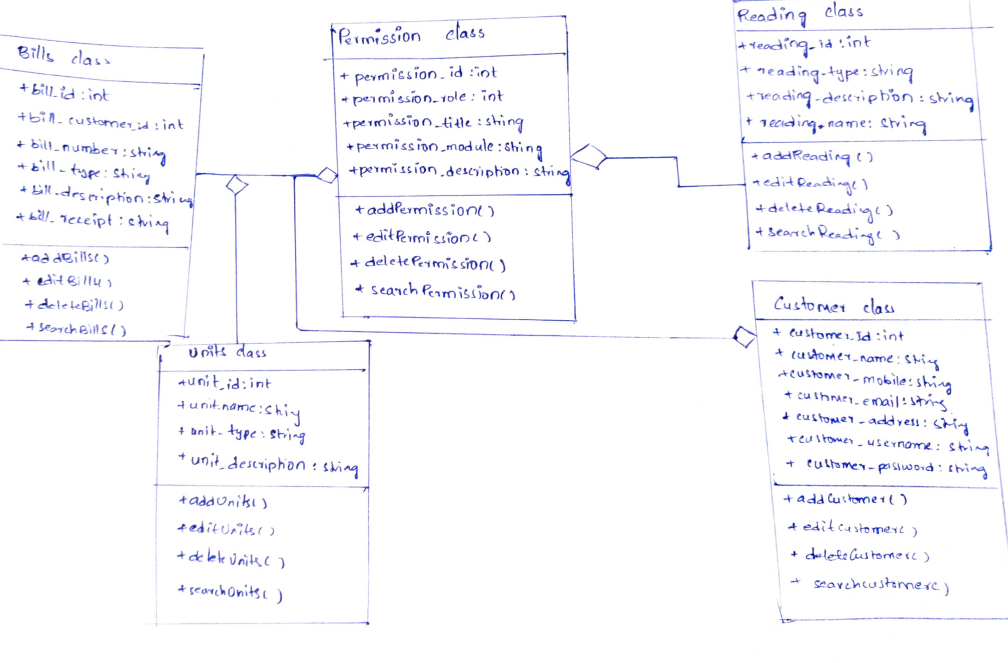 Bills class
+bill_id:int
+bill_customer_id:int
+bill_number:string
+bill_type:string
+bill_description:string
+bill_receipt:string
+addBills()
+editBills()
+deleteBills()
+searchBills()
Permission class
+permission_id:int
+permission_role:int
+permission_title:string
+permission_module:string
+permission_description:string
+addPermission()
+editPermission()
+deletePermission()
+searchPermission()
Reading class
+reading_id:int
+reading_type:string
+reading_description:string
+reading_name:string
+addReading()
+editReading()
+deleteReading()
+searchReading()
Units class
+unit_id:int
+unit_name:string
+unit_type:string
+unit_description:string
+addUnits()
+editUnits()
+deleteUnits()
+searchUnits()
Customer class
+customer_Id:int
+customer_name:string
+customer_mobile:string
+customer_email:string
+customer_address:string
+customer_username:string
+customer_password:string
+addCustomer()
+editCustomer()
+deleteCustomer()
+searchcustomer()